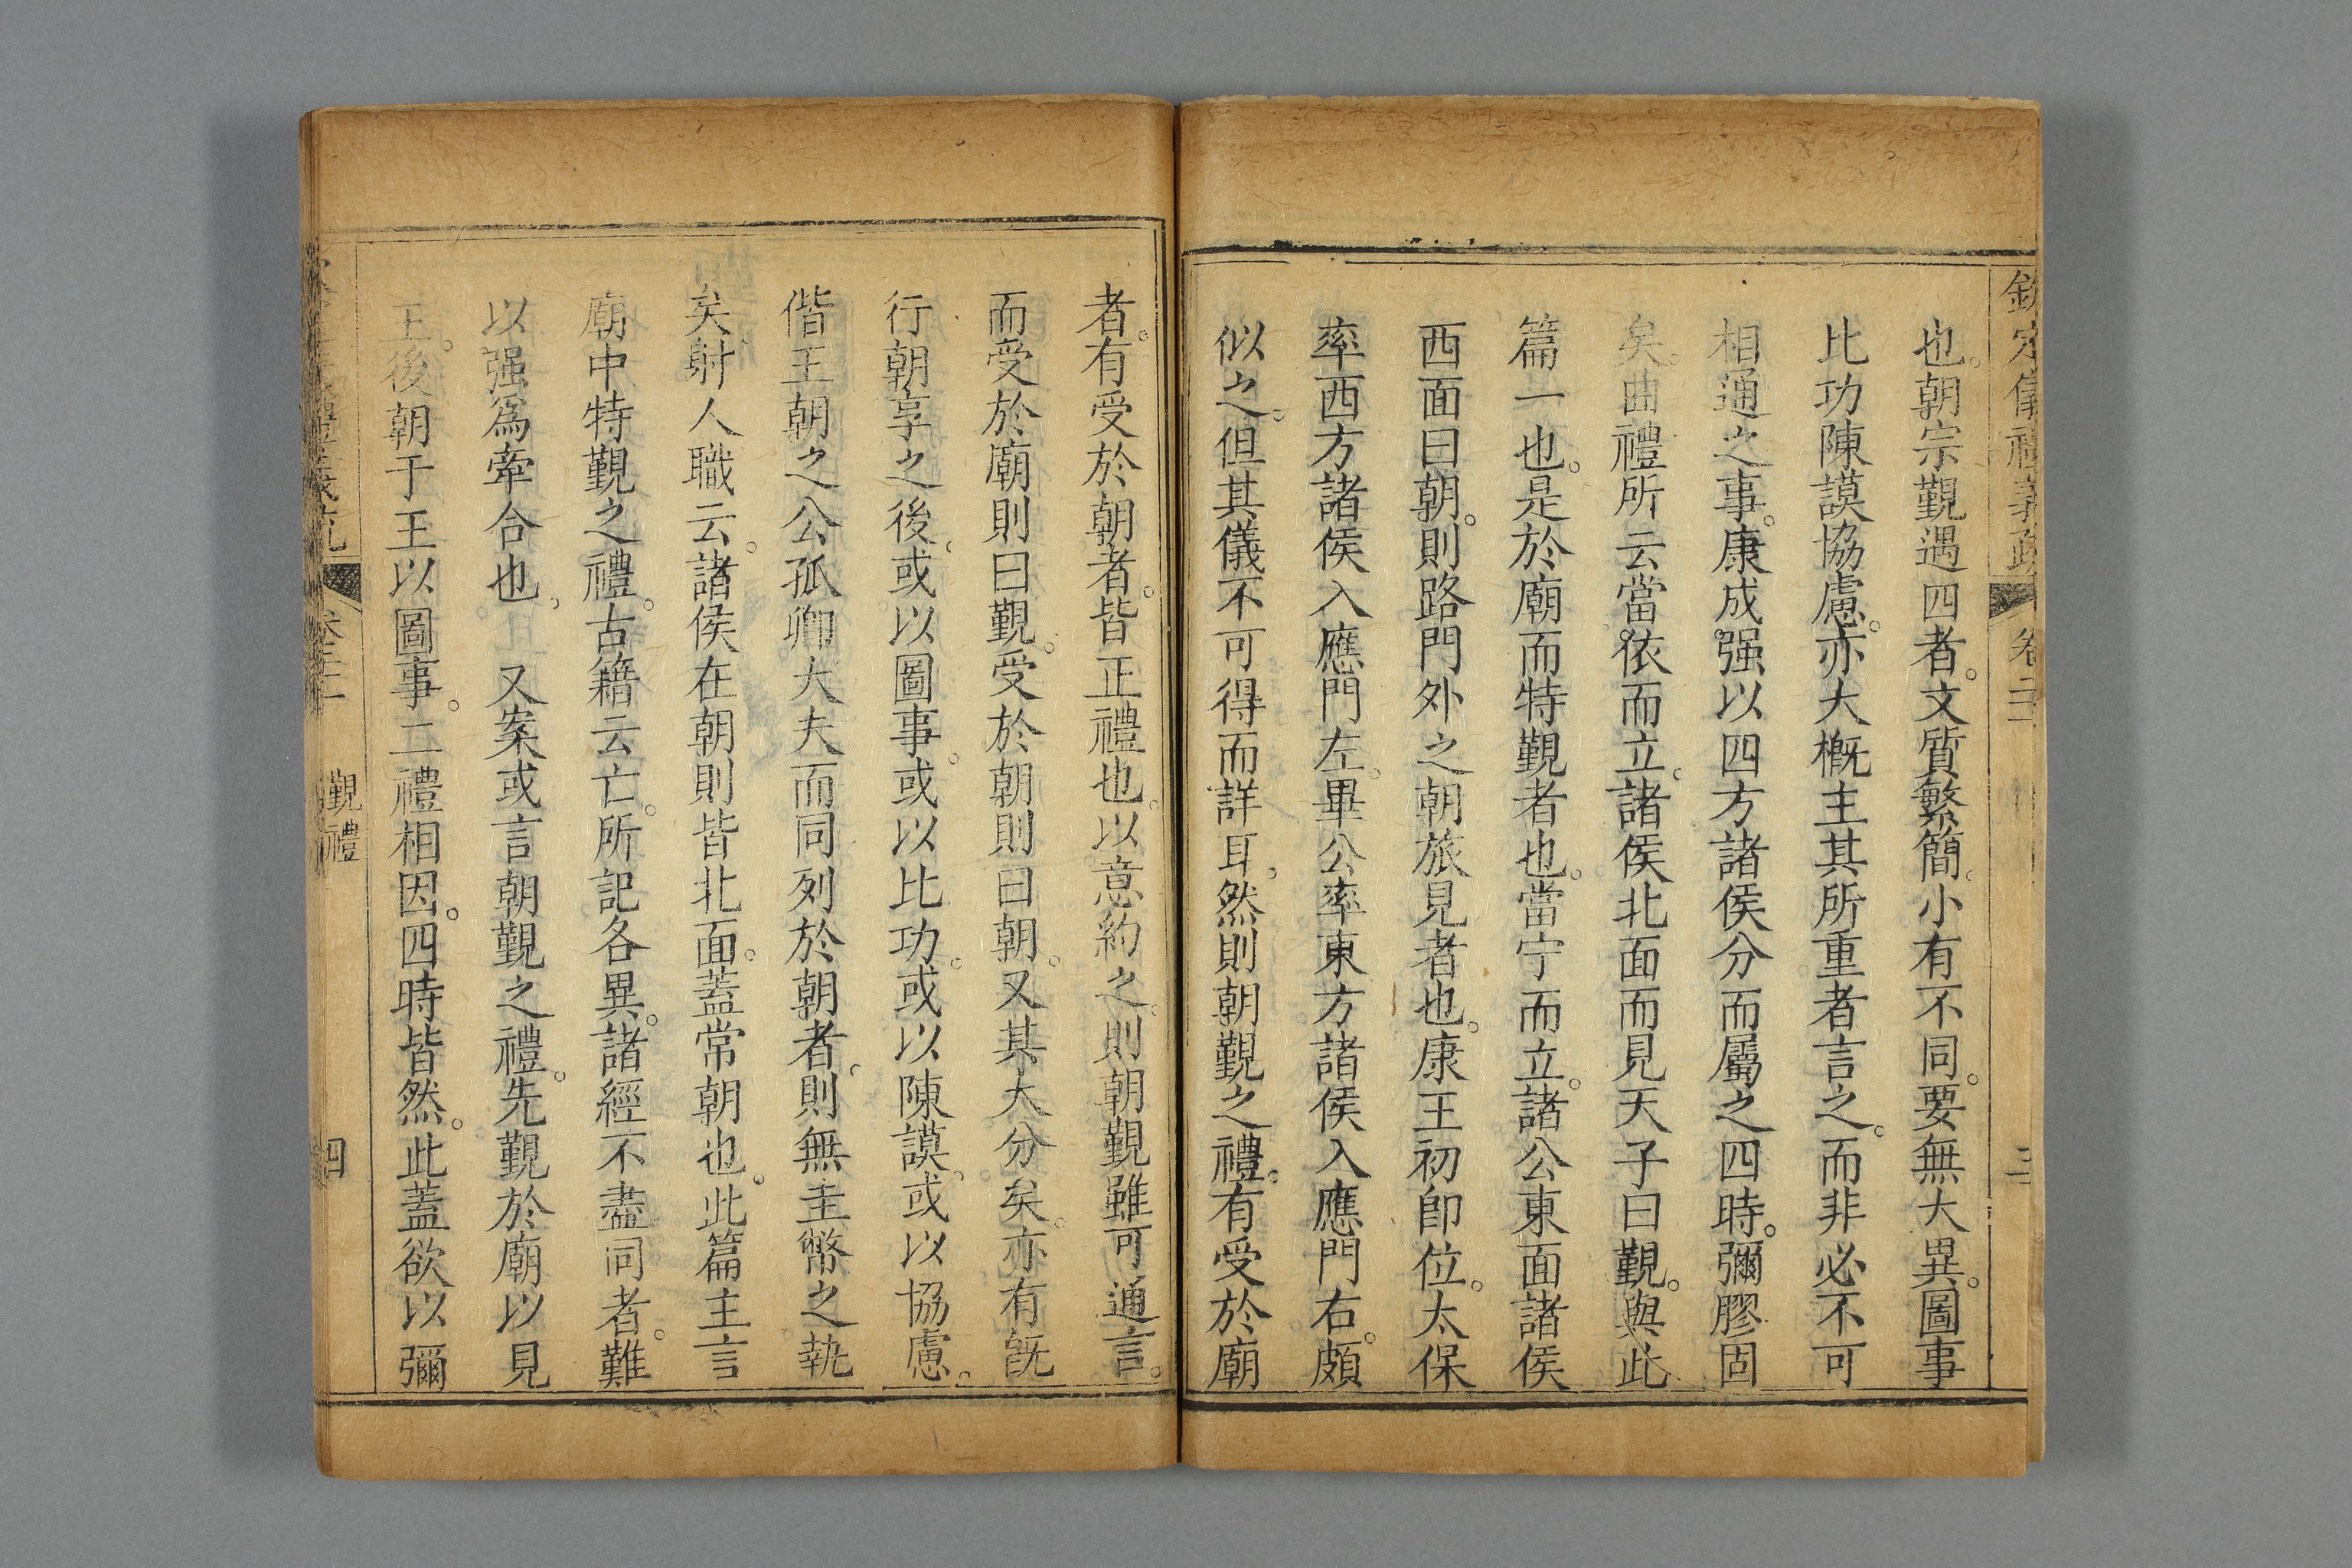 也。朝宗覲遇四者。文質繁簡。小有不同。要無大異。圖事
比功陳謨協慮。亦大概主其所重者言之。而非必不可
相通之事。康成强以四方諸侯分而屬之四時。彌膠固
矣。曲禮所云當依而立。諸侯北面而見天子曰覲。與此
篇一也。是於廟而特覲者也。當宁而立。諸公東面諸侯
西面曰朝。則路門外之朝旅見者也。康王初卽位。太保
率西方諸侯入應門左。畢公率東方諸侯入應門右。頗
似之。但其儀不可得而詳耳。然則朝覲之禮。有受於廟
者。有受於朝者。皆正禮也。以意約之。則朝覲雖可通言。
而受於廟則曰覲。受於朝則曰朝。又其大分矣。亦有旣
行朝享之後。或以圖事。或以比功。或以陳謨。或以協慮。
偕王朝之公孤卿大夫而同列於朝者。則無圭幣之執
矣。射人職云。諸侯在朝則皆北面。蓋常朝也。此篇主言
廟中特覲之禮。古籍云亡。所記各異。諸經不盡同者。難
以强爲牽合也。 又案或言朝覲之禮。先覲於廟以見
王。後朝于王以圖事。二禮相因。四時皆然。此蓋欲以彌
覲禮
四